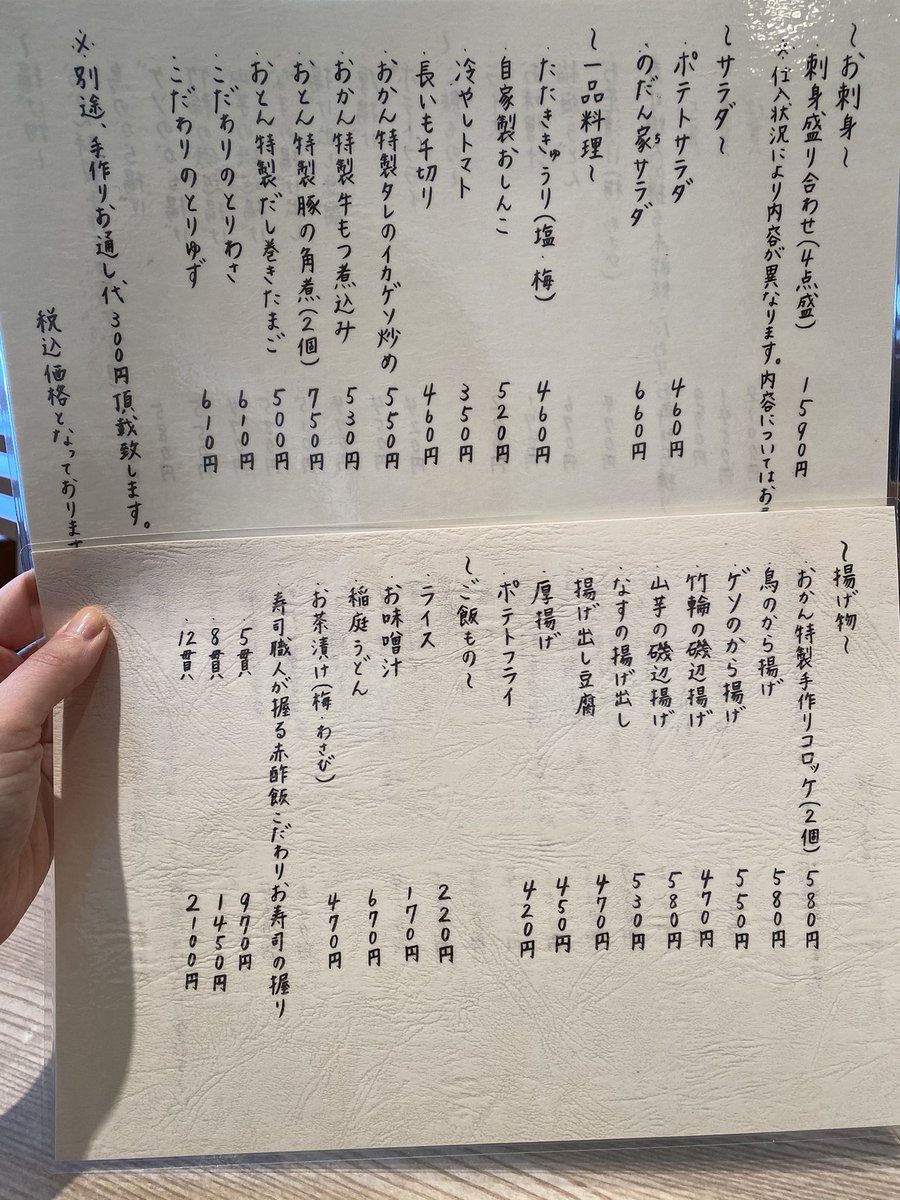 ～お刺身～
・刺身盛り合わせ(4点盛) 1590円
※仕入状況により内容が異なります。内容については、お
～サラダ～
・ポテトサラダ 460円
・のだん家サラダ 660円
～一品料理～
・たたききゅうり(塩・梅) 460円
・自家製おしんこ 520円
・冷やしトマト 350円
・長いも千切り 460円
・おかん特製タレのイカゲソ炒め 550円
・おかん特製牛もつ煮込み 530円
・おとん特製豚の角煮(2個) 750円
・おとん特製だし巻きたまご 500円
・こだわりのとりわさ 610円
・こだわりのとりゆず 610円
※別途、手作りお通し代300円頂戴致します。
税込価格となっております
～揚げ物～
・おかん特製手作りコロッケ(2個) 580円
・鳥のから揚げ 580円
・ゲソのから揚げ 550円
・竹輪の磯辺揚げ 470円
・山芋の磯辺揚げ 580円
・なすの揚げ出し 530円
・揚げ出し豆腐 470円
・厚揚げ 450円
・ポテトフライ 420円
～ご飯もの～
・ライス 220円
・お味噌汁 170円
・稲庭うどん 670円
・お茶漬け(梅・わさび) 470円
・寿司職人が握る赤酢飯こだわりお寿司の握り
・5貫 970円
・8貫 1450円
・12貫 2100円